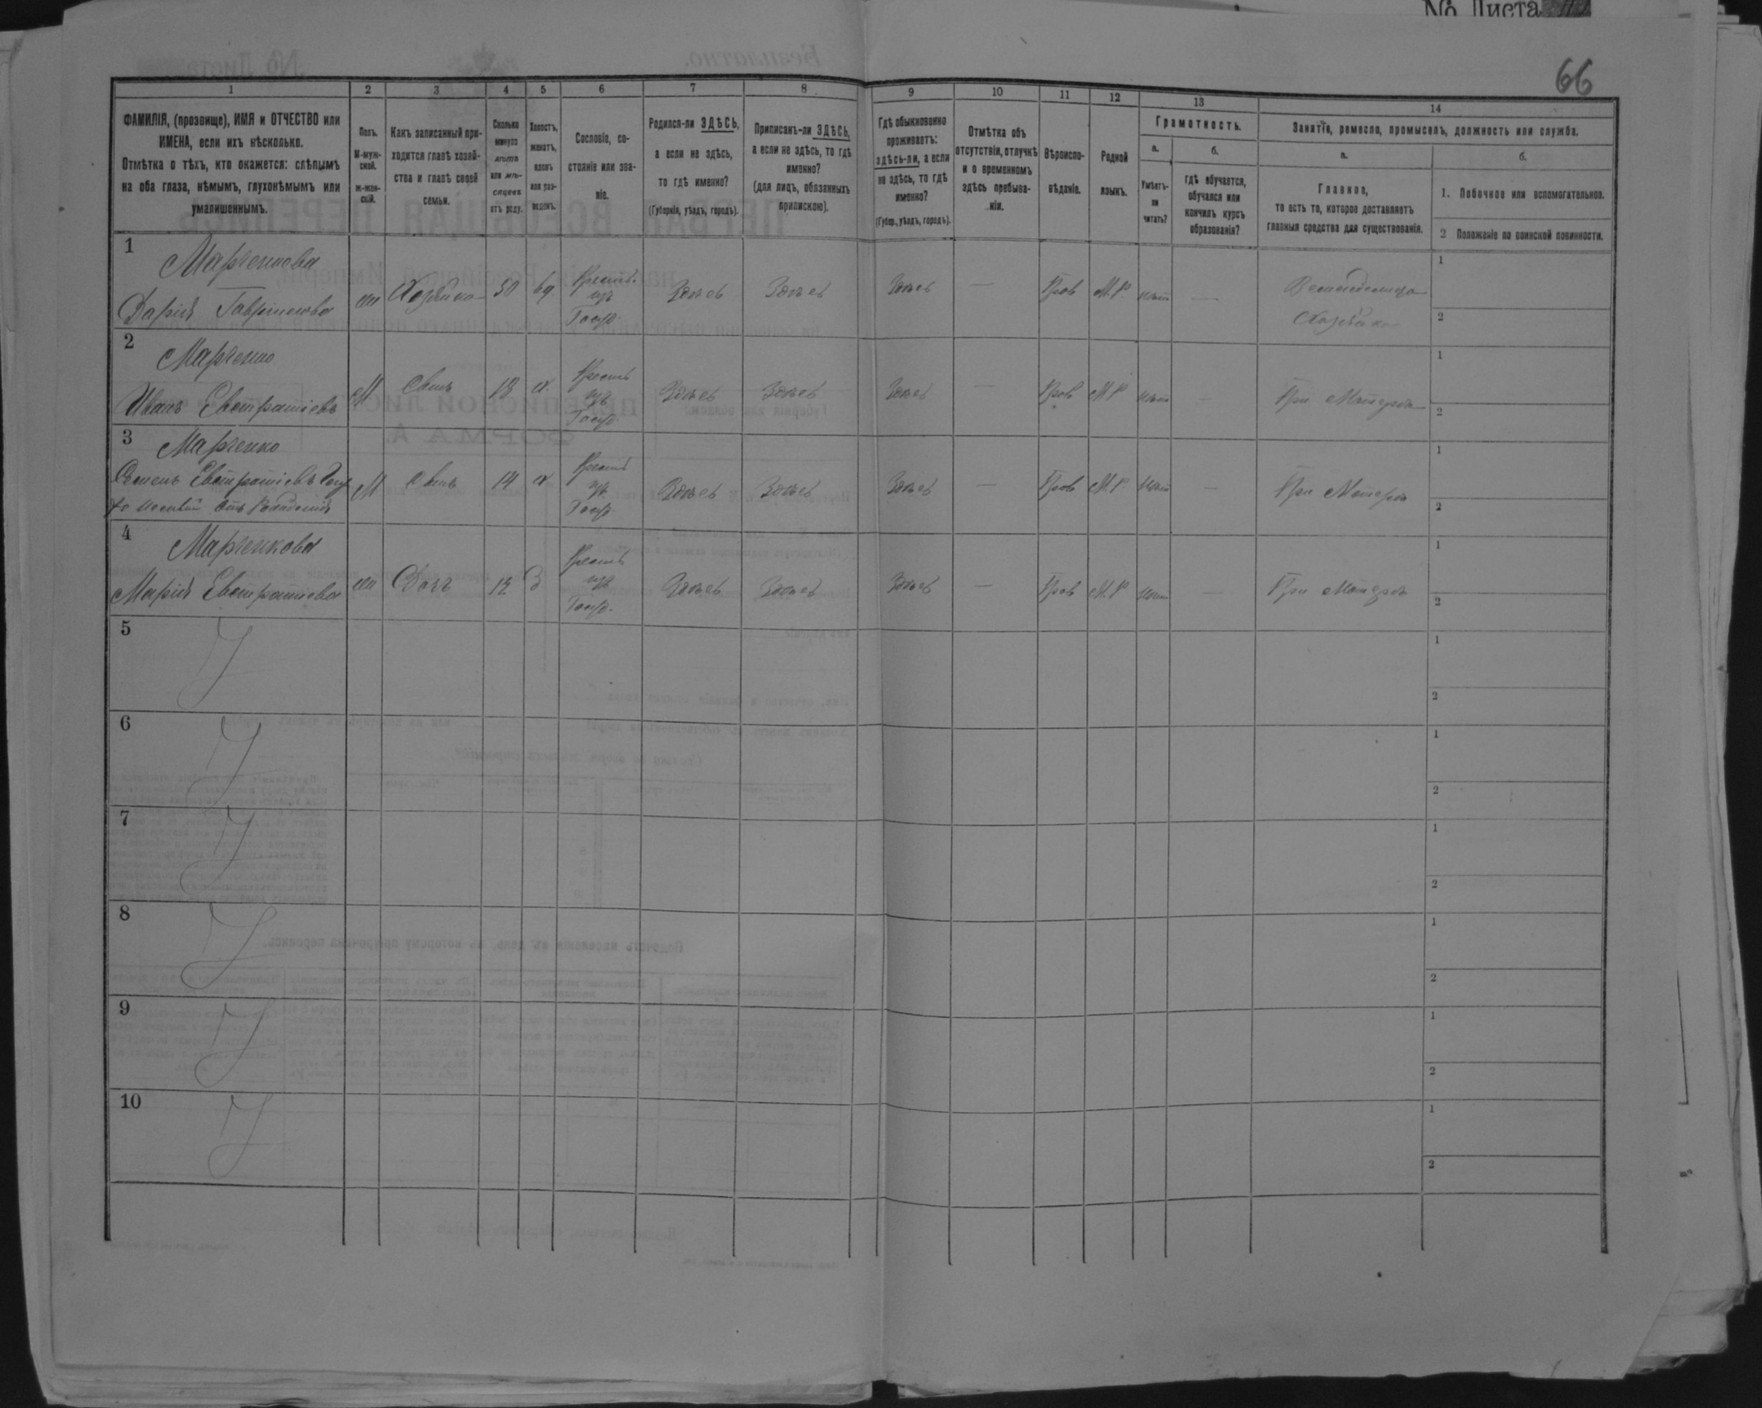 № Листа
66
1 2 3 4 5 6 7 8 9 10 11 12 13 14
ФАМИЛІЯ, (прозвище), ИМЯ и ОТЧЕСТВО или
ИМЕНА, если ихъ нѣсколько.
Отмѣтка о тѣхъ, кто окажется: слѣпымъ
на оба глаза, нѣмымъ, глухонѣмымъ или
умалишеннымъ.
Полъ.
М-муж-
ской.
ж-жен-
скій.
Какъ записанный при-
ходится главѣ хозяй-
ства и главѣ своей
семьи.
Сколько
минуло
лѣтъ
или мѣ-
сяцевъ
отъ роду.
Холостъ,
женатъ,
вдовъ
или раз-
веденъ.
Сословіе, со-
стояніе или зва-
ніе.
Родился-ли ЗДѢСЬ,
а если не здѣсь,
то гдѣ именно?
(Губернія, уѣздъ, городъ).
Приписанъ-ли ЗДѢСЬ,
а если не здѣсь, то гдѣ
именно?
(для лицъ, обязанныхъ
припискою).
Гдѣ обыкновенно
проживаетъ:
здѣсь-ли, а если
не здѣсь, то гдѣ
именно?
(Губер., уѣздъ, городъ).
Отмѣтка объ
отсутствіи, отлучкѣ
и о временномъ
здѣсь пребыва-
ніи.
Вѣроиспо-
вѣданіе.
Родной
языкъ.
Грамотность.
а.
Умѣетъ-
ли
читать?
б.
гдѣ обучается,
обучался или
кончилъ курсъ
образованія?
Занятіе, ремесло, промыселъ, должность или служба.
а.
Главное,
то есть то, которое доставляетъ
главныя средства для существованія.
б.
1. Побочное или вспомогательное.
2 Положеніе по воинской повинности.
1
Марченкова
Дарія Гаврилова
Хозяйка 50 вд
Крест.
изъ
Госуд.
Здѣсь Здѣсь Здѣсь — Прав М.Р. нѣт —
Хозяйка
1
2
2
Марченко
Иванъ Евстратіевъ
М Сынъ х.
Крест.
изъ
Госуд.
Здѣсь Здѣсь Здѣсь — Прав М.Р. нѣт —
При Матери
1
2
3
Марченко
Семенъ Евстратіевъ
М Сынъ 14 х
Крест.
изъ
Госуд.
Здѣсь Здѣсь Здѣсь — Прав М.Р. нѣт —
При Матери
1
2
4
Марченкова
Марія Евстратіева
Дочь 12 д
Крест.
изъ
Госуд.
Здѣсь Здѣсь Здѣсь — Прав М.Р. нѣт —
При Матери
1
2
5
1
2
6
1
2
7
1
2
8
1
2
9
1
2
10
1
2